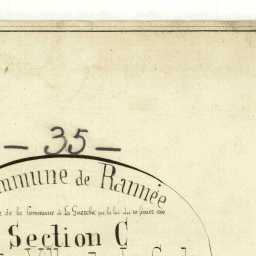 — 35 —
mmune de Rannée
de la Commune de La Guerche par la loi du
Section C